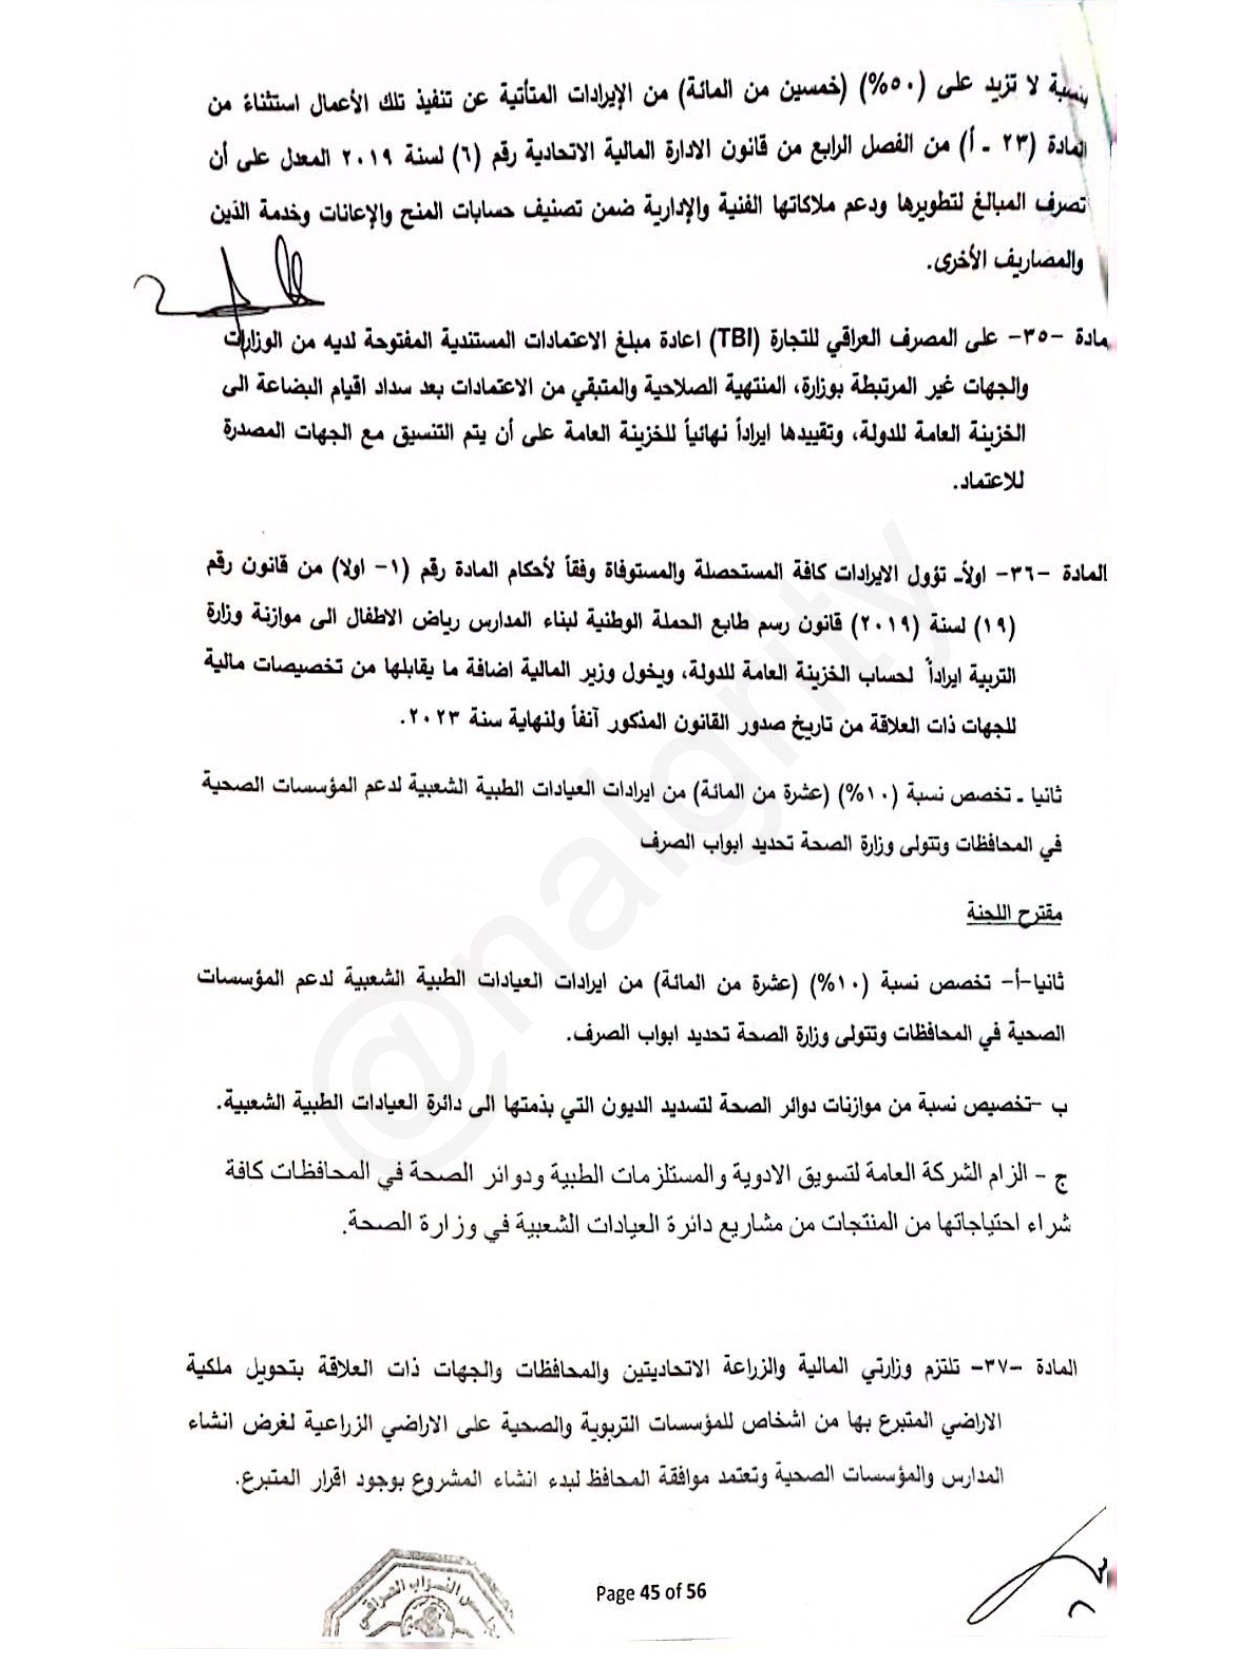 بنسبة لا تزيد على (٥٠%) (خمسين من المائة) من الإيرادات المتأتية عن تنفيذ تلك الأعمال استثناءً من
المادة (٢٣ ـ أ) من الفصل الرابع من قانون الادارة المالية الاتحادية رقم (٦) لسنة ٢٠١٩ المعدل على أن
تصرف المبالغ لتطويرها ودعم ملاكاتها الفنية والإدارية ضمن تصنيف حسابات المنح والإعانات وخدمة الدَين
والمصاريف الأخرى.
مادة -٣٥- على المصرف العراقي للتجارة (TBI) اعادة مبلغ الاعتمادات المستندية المفتوحة لديه من الوزارات
والجهات غير المرتبطة بوزارة، المنتهية الصلاحية والمتبقي من الاعتمادات بعد سداد اقيام البضاعة الى
الخزينة العامة للدولة، وتقييدها ايراداً نهائياً للخزينة العامة على أن يتم التنسيق مع الجهات المصدرة
للاعتماد.
المادة -٣٦- اولاً- تؤول الايرادات كافة المستحصلة والمستوفاة وفقاً لأحكام المادة رقم (١- اولا) من قانون رقم
(١٩) لسنة (٢٠١٩) قانون رسم طابع الحملة الوطنية لبناء المدارس رياض الاطفال الى موازنة وزارة
التربية ايراداً لحساب الخزينة العامة للدولة، ويخول وزير المالية اضافة ما يقابلها من تخصيصات مالية
للجهات ذات العلاقة من تاريخ صدور القانون المذكور آنفاً ولنهاية سنة ٢٠٢٣.
ثانيا ـ تخصص نسبة (١٠%) (عشرة من المائة) من ايرادات العيادات الطبية الشعبية لدعم المؤسسات الصحية
في المحافظات وتتولى وزارة الصحة تحديد ابواب الصرف
مقترح اللجنة
ثانيا-أ- تخصص نسبة (١٠%) (عشرة من المائة) من ايرادات العيادات الطبية الشعبية لدعم المؤسسات
الصحية في المحافظات وتتولى وزارة الصحة تحديد ابواب الصرف.
ب -تخصيص نسبة من موازنات دوائر الصحة لتسديد الديون التي بذمتها الى دائرة العيادات الطبية الشعبية.
ج - الزام الشركة العامة لتسويق الادوية والمستلزمات الطبية ودوائر الصحة في المحافظات كافة
شراء احتياجاتها من المنتجات من مشاريع دائرة العيادات الشعبية في وزارة الصحة.
المادة -٣٧- تلتزم وزارتي المالية والزراعة الاتحاديتين والمحافظات والجهات ذات العلاقة بتحويل ملكية
الاراضي المتبرع بها من اشخاص للمؤسسات التربوية والصحية على الاراضي الزراعية لغرض انشاء
المدارس والمؤسسات الصحية وتعتمد موافقة المحافظ لبدء انشاء المشروع بوجود اقرار المتبرع.
مجلس النواب العراقي
Page 45 of 56
@nalgrity